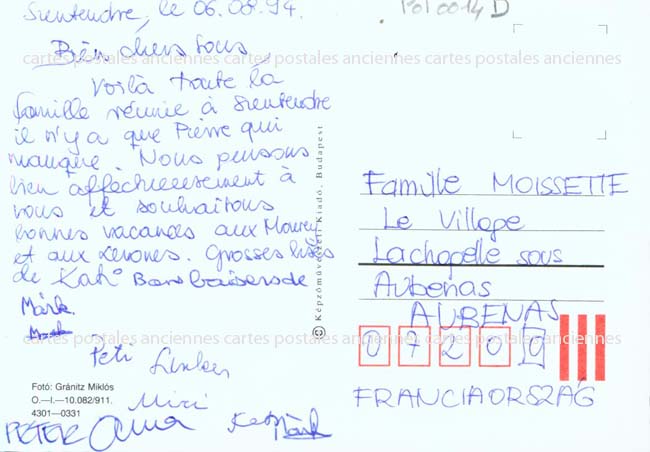 Szentendre, le 06.08.94.
POI 0014 D
Bien chers tous,
cartes postales anciennes cartes postales anciennes cartes postales anciennes
Voilà toute la
famille réunie à Szentendre
il n'y a que Pierre qui
manque. Nous pensons
bien affectueusement à
vous et souhaitons
bonnes vacances aux
et aux Grosses bises
de Kati Bons baisers de
Márk
Peti
Foto: Gránitz Miklós
O.—I.—10.082/911.
4301—0331
Miri
PÉTER Anna
Márk
© Képzőművészeti Kiadó, Budapest
Famille MOISSETTE
Le Village
Lachapelle sous
Aubenas
AUBENAS
cartes postales anciennes cartes postales anciennes cartes postales anciennes
07200
FRANCIAORSZÁG